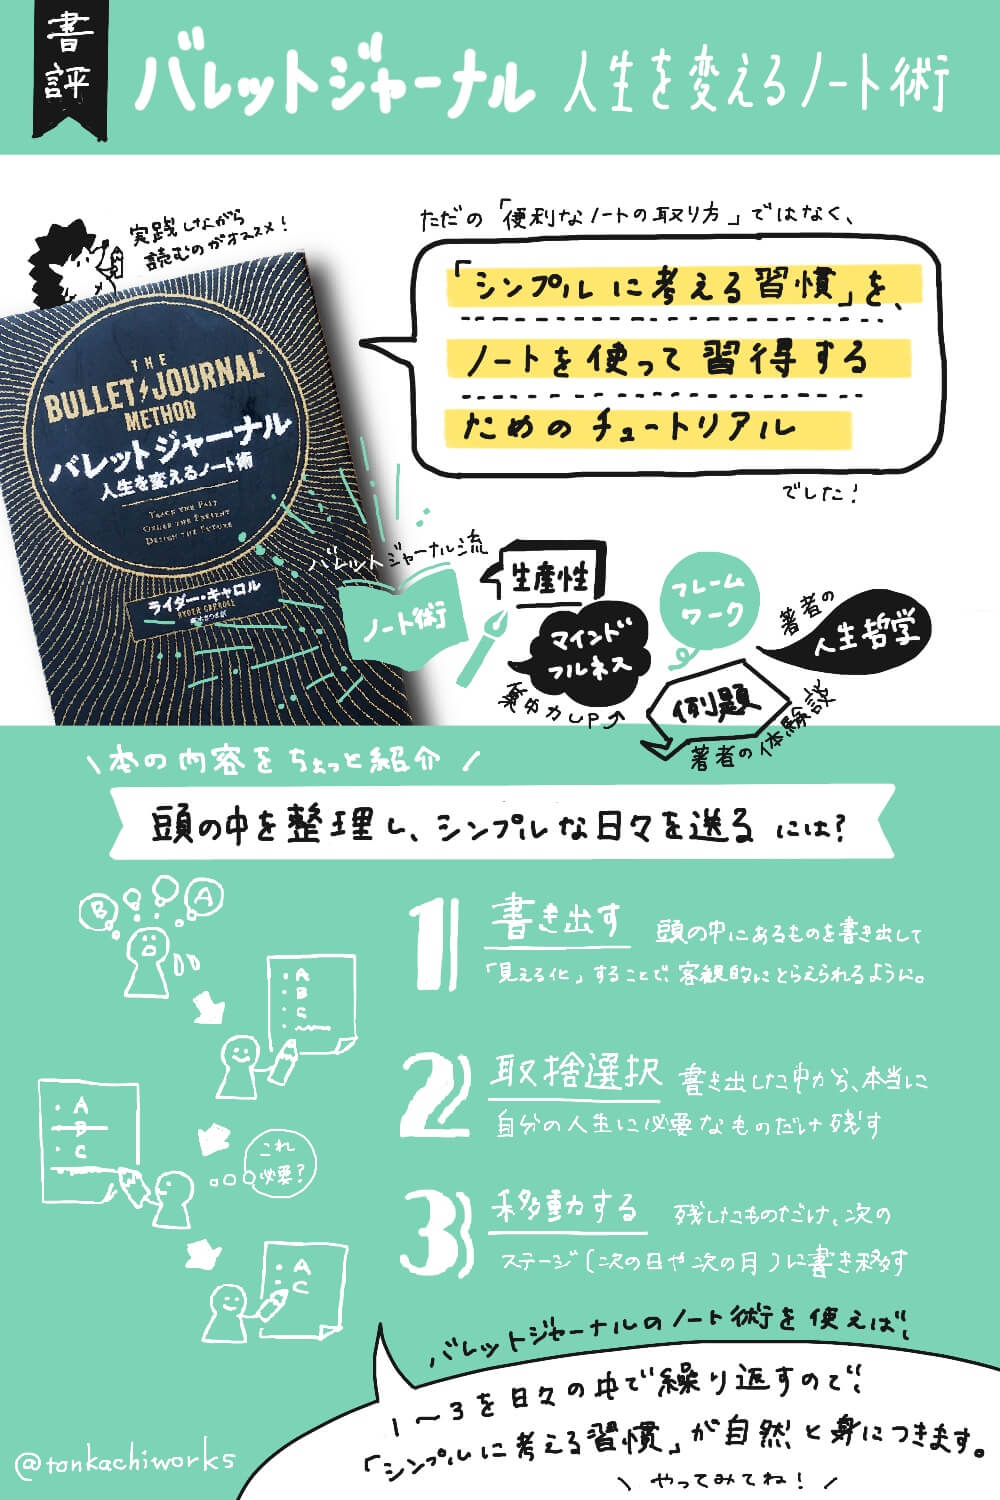 書評
バレットジャーナル 人生を変えるノート術
実践しながら
読むのがオススメ!
ただの「便利なノートの取り方」ではなく、
「シンプルに考える習慣」を、
ノートを使って習得する
ためのチュートリアル
でした!
THE
BULLET JOURNAL®
METHOD
バレットジャーナル
人生を変えるノート術
TRACK THE PAST
ORDER THE PRESENT
DESIGN THE FUTURE
ライダー・キャロル
RYDER CARROLL
バレットジャーナル流
ノート術
生産性
マインド
フルネス
集中力UP
フレーム
ワーク
著者の
人生哲学
例題
著者の体験談
\ 本の内容をちょっと紹介 /
頭の中を整理し、シンプルな日々を送る には?
B A
・A
・B
・C
1 書き出す 頭の中にあるものを書き出して
「見える化」することで、客観的にとらえられるように。
・A
・B
・C
これ
必要?
2 取捨選択 書き出した中から、本当に
自分の人生に必要なものだけ残す
・A
・C
3 移動する 残したものだけ、次の
ステージ(次の日や次の月)に書き移す
バレットジャーナルのノート術を使えば、
1〜3を日々の中で繰り返すので、
「シンプルに考える習慣」が自然と身につきます。
\ やってみてね! /
@tonkachiworks